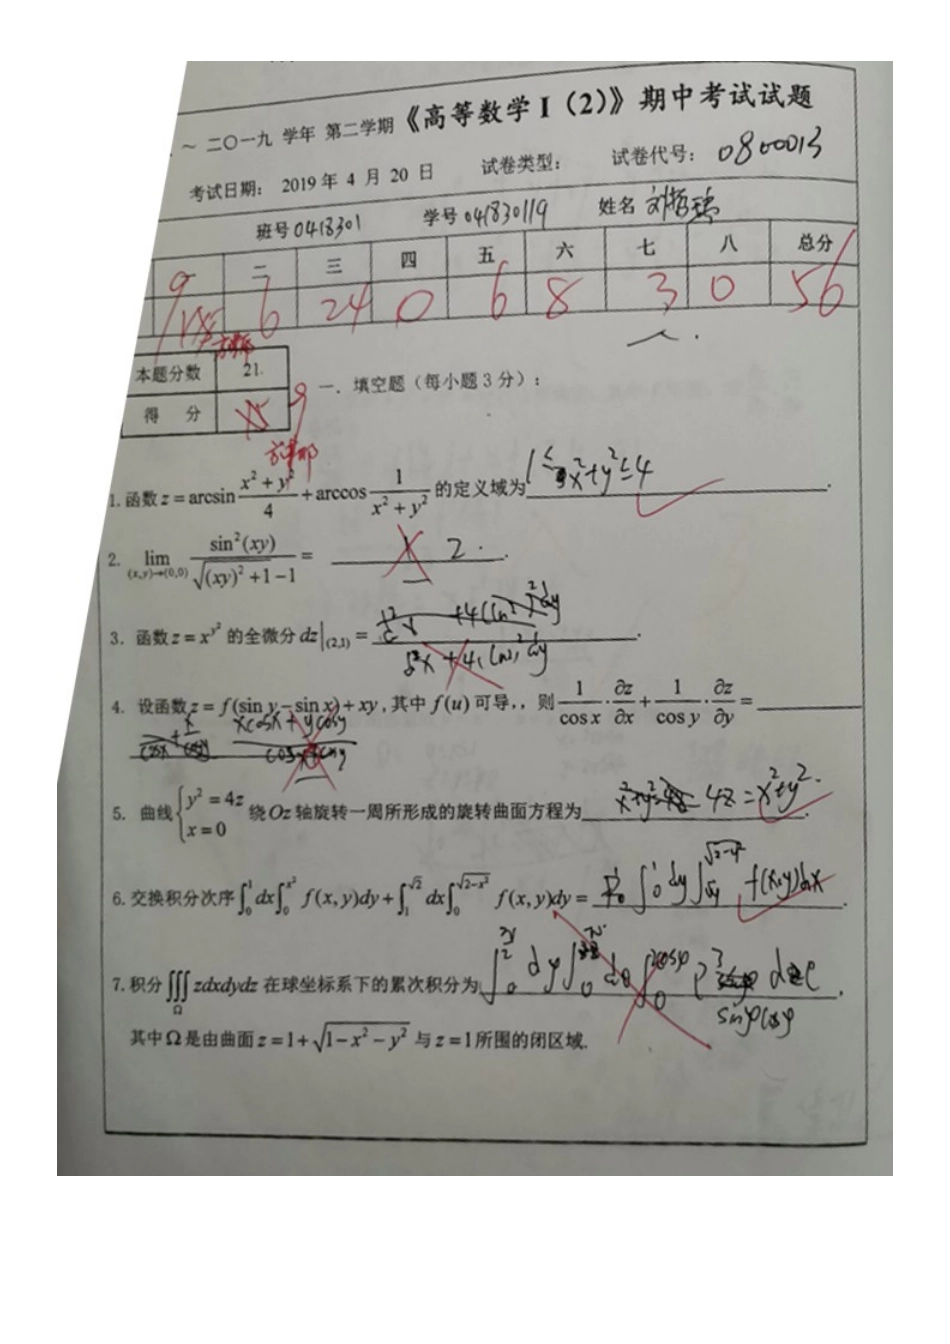 ～ 二〇一九 学年 第二学期《高等数学 I（2）》期中考试试题
考试日期： 2019 年 4 月 20 日 试卷类型： 试卷代号： 0800013
班号 0418301 学号 041830119 姓名
一 二 三 四 五 六 七 八 总分
9 6 24 0 6 8 3 0 56
本题分数 21.
得 分 9
一．填空题（每小题 3 分）：
1. 函数 z = arcsin (x² + y²)/4 + arccos 1/(x² + y²) 的定义域为 1 ≤ x²+y² ≤ 4.
2. lim (x,y)→(0,0) sin²(xy)/(√((xy)² +1) −1) = 2.
3. 函数 z = x^(y²) 的全微分 dz|(2,1) =
4. 设函数 z = f(sin y − sin x) + xy，其中 f(u) 可导，，则 1/cos x · ∂z/∂x + 1/cos y · ∂z/∂y =
5. 曲线 { y² = 4z, x = 0 绕 Oz 轴旋转一周所形成的旋转曲面方程为 4z = x²+y².
6. 交换积分次序 ∫₀¹ dx ∫₀^(x²) f(x, y)dy + ∫₁^(√2) dx ∫₀^(√(2−x²)) f(x, y)dy = ∫₀¹ dy ∫_(√y)^(√(2−y²)) f(x,y)dx.
7. 积分 ∭_Ω zdxdydz 在球坐标系下的累次积分为
sinφcosφ
其中 Ω 是由曲面 z = 1 + √(1 − x² − y²) 与 z = 1 所围的闭区域.